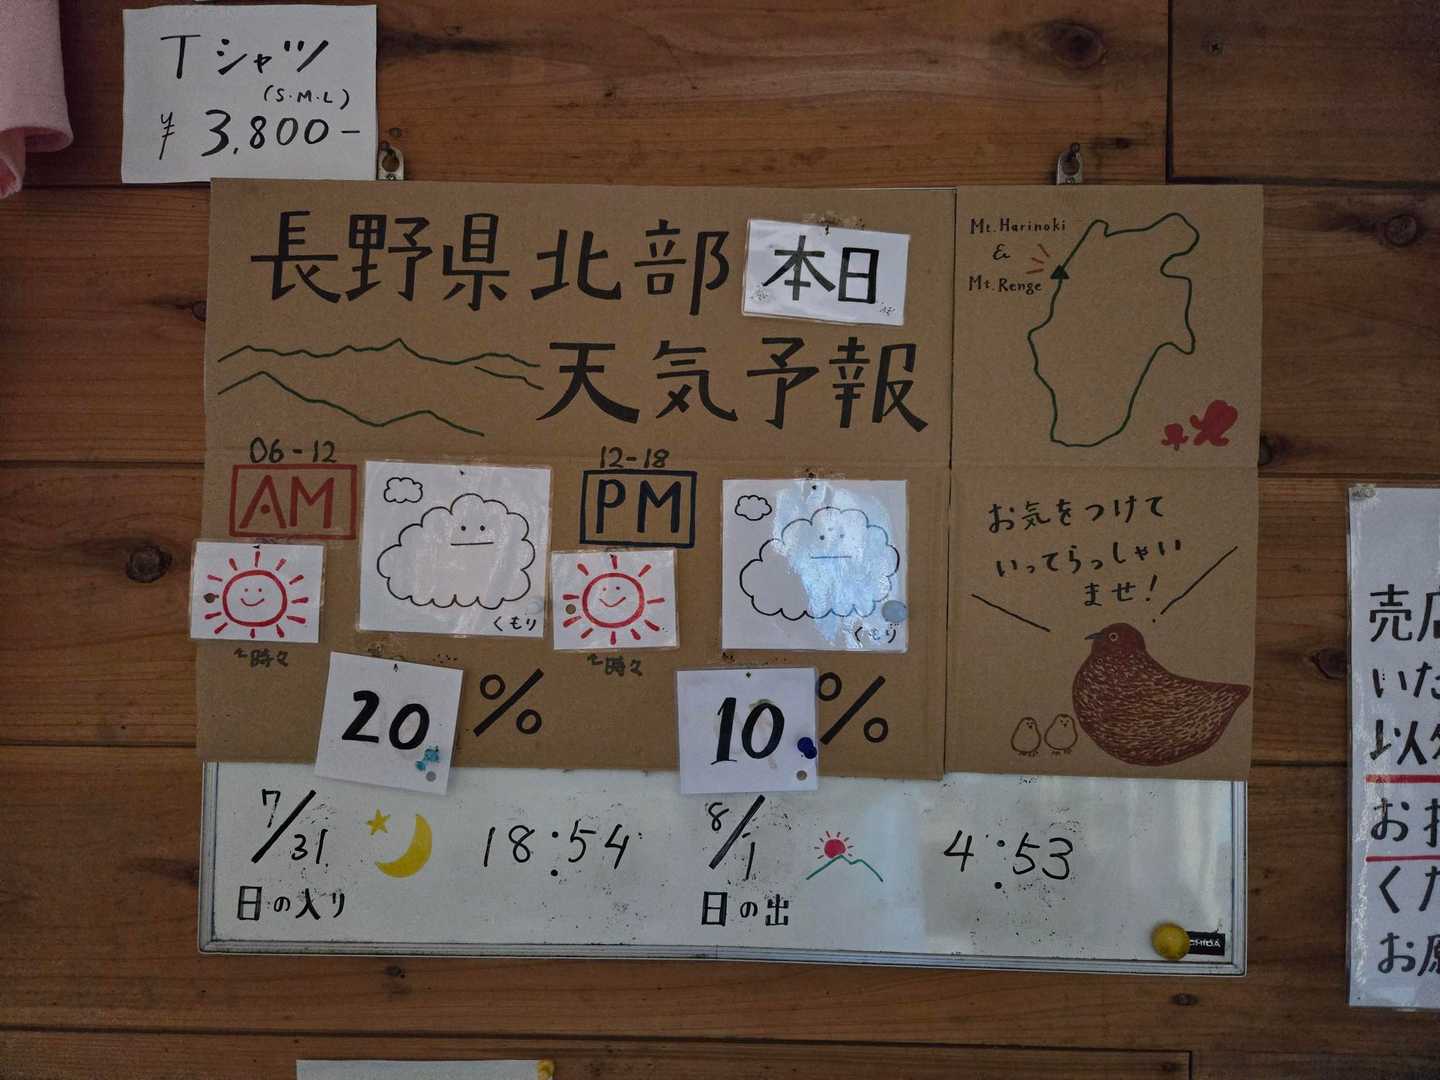 Tシャツ
(S・M・L)
¥3,800-
長野県北部 本日
天気予報
06-12
AM
くもり
時々
20%
12-18
PM
くもり
時々
10%
Mt. Harinoki
&
Mt. Renge
お気をつけて
いってらっしゃい
ませ!
7/31
18:54
日の入り
8/1
4:53
日の出
いた
お
くだ
お願